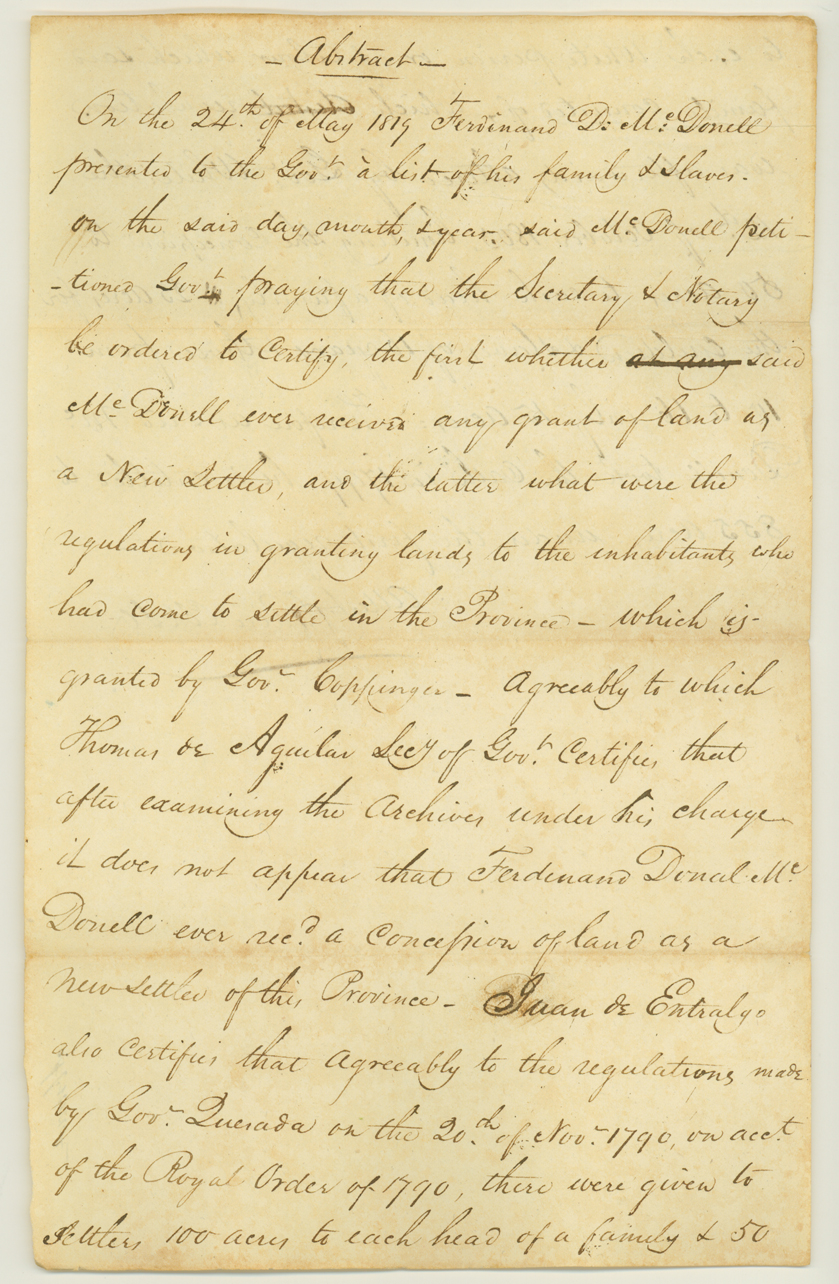 – Abstract –
On the 24th. of May 1819 Ferdinand D: Mc. Donell
presented to the Govt. a list of his family & slaves.
on the said day, month, & year said Mc. Donell peti–
–tioned Govt. praying that the Secretary & Notary
be ordered to Certify, the first whether at any said
Mc. Donell ever received any grant of land as
a New Settler, and the latter what were the
regulations in granting lands to the inhabitants who
had come to settle in the Province – which is
granted by Govr. Coppinger – Agreeably to which
Thomas de Aguilar Secy of Govt. Certifies that
after examining the Archives under his charge
it does not appear that Ferdinand Donal Mc.
Donell ever recd. a Concession of land as a
new settler of this Province – Juan de Entralgo
also Certifies that Agreeably to the regulations made
by Govr. Quesada on the 20th. of Novr. 1790, on acct.
of the Royal Order of 1790, there were given to
settlers 100 acres to each head of a family & 50